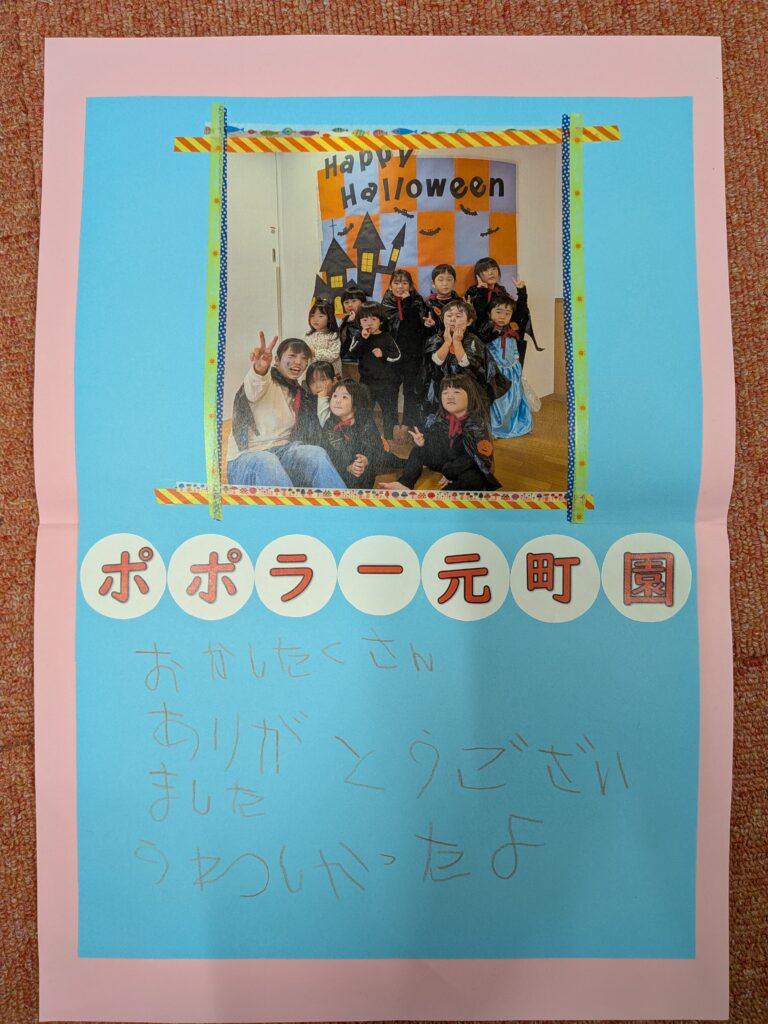 Happy
Halloween
ポポラー元町園
おかしたくさん
ありがとうござい
ました
うれしかったよ